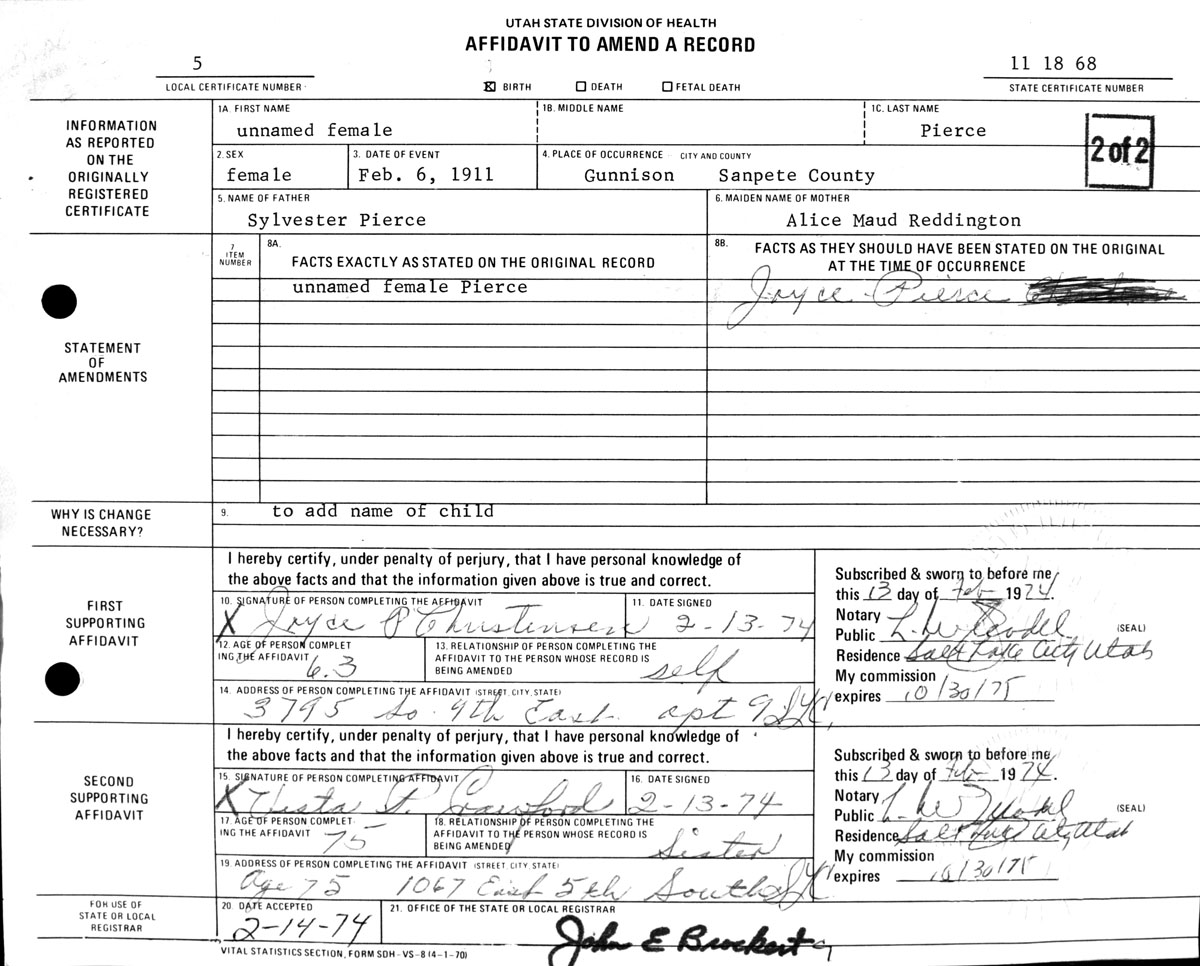 UTAH STATE DIVISION OF HEALTH
AFFIDAVIT TO AMEND A RECORD
5
LOCAL CERTIFICATE NUMBER
☒ BIRTH ☐ DEATH ☐ FETAL DEATH
11 18 68
STATE CERTIFICATE NUMBER
INFORMATION
AS REPORTED
ON THE
ORIGINALLY
REGISTERED
CERTIFICATE
1A. FIRST NAME
unnamed female
1B. MIDDLE NAME
1C. LAST NAME
Pierce
2 of 2
2. SEX
female
3. DATE OF EVENT
Feb. 6, 1911
4. PLACE OF OCCURRENCE CITY AND COUNTY
Gunnison Sanpete County
5. NAME OF FATHER
Sylvester Pierce
6. MAIDEN NAME OF MOTHER
Alice Maud Reddington
STATEMENT
OF
AMENDMENTS
7
ITEM
NUMBER
8A.
FACTS EXACTLY AS STATED ON THE ORIGINAL RECORD
unnamed female Pierce
8B. FACTS AS THEY SHOULD HAVE BEEN STATED ON THE ORIGINAL
AT THE TIME OF OCCURRENCE
Joyce Pierce
WHY IS CHANGE
NECESSARY?
9. to add name of child
FIRST
SUPPORTING
AFFIDAVIT
I hereby certify, under penalty of perjury, that I have personal knowledge of
the above facts and that the information given above is true and correct.
10. SIGNATURE OF PERSON COMPLETING THE AFFIDAVIT
X Joyce P Christensen
11. DATE SIGNED
2-13-74
12. AGE OF PERSON COMPLET
ING THE AFFIDAVIT
63
13. RELATIONSHIP OF PERSON COMPLETING THE
AFFIDAVIT TO THE PERSON WHOSE RECORD IS
BEING AMENDED
self
14. ADDRESS OF PERSON COMPLETING THE AFFIDAVIT (STREET, CITY, STATE)
3795 So. 9th East apt 9 SLC,
Subscribed & sworn to before me
this 13 day of Feb 1974.
Notary
Public L. W.
(SEAL)
Residence Salt Lake City Utah
My commission
expires 10/30/75
SECOND
SUPPORTING
AFFIDAVIT
I hereby certify, under penalty of perjury, that I have personal knowledge of
the above facts and that the information given above is true and correct.
15. SIGNATURE OF PERSON COMPLETING AFFIDAVIT
X Vista P. Crawford
16. DATE SIGNED
2-13-74
17. AGE OF PERSON COMPLET-
ING THE AFFIDAVIT
75
18. RELATIONSHIP OF PERSON COMPLETING THE
AFFIDAVIT TO THE PERSON WHOSE RECORD IS
BEING AMENDED
Sister
19. ADDRESS OF PERSON COMPLETING THE AFFIDAVIT (STREET, CITY, STATE)
Age 75 1067 East 5th South SLC
Subscribed & sworn to before me
this 13 day of Feb 1974.
Notary
Public L. W.
(SEAL)
Residence Salt Lake City, Utah
My commission
expires 10/30/75
FOR USE OF
STATE OR LOCAL
REGISTRAR
20. DATE ACCEPTED
2-14-74
21. OFFICE OF THE STATE OR LOCAL REGISTRAR
John E Brockert
VITAL STATISTICS SECTION, FORM SDH-VS-8 (4-1-70)